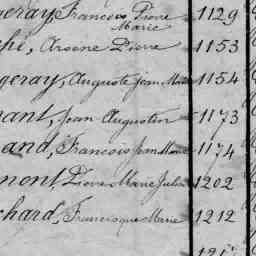 geray, François Pierre 1129
Marie
ché, Arsène Pierre 1153
geray, Auguste Jean Marie 1154
nant, Jean Augustin 1173
and, François Jean Marie 1174
mont, Pierre Marie Julien 1202
chard, Francisque Marie 1212